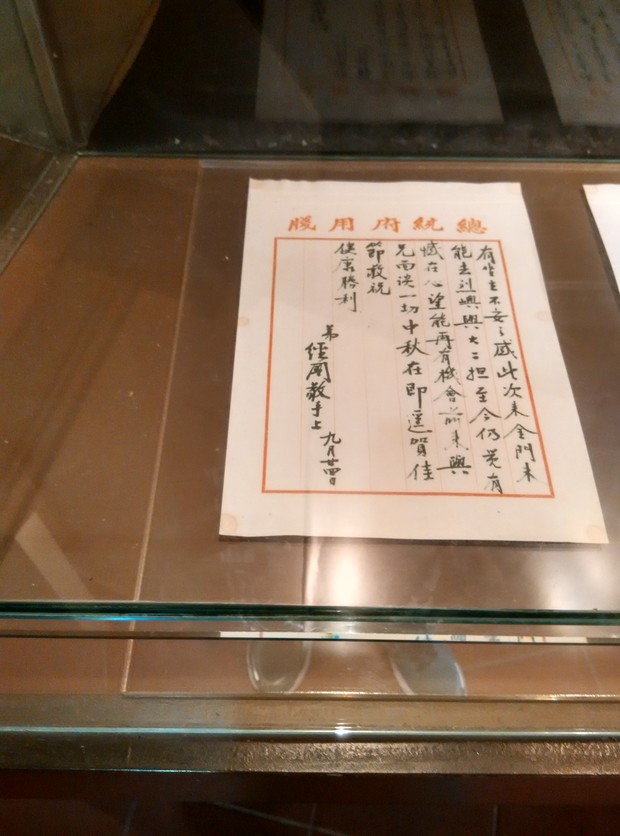 總統府用牋
有坐立不安之感此次來金門未
能去烈嶼與大二担至今仍覺有
憾在心望能再有機會前來與
兄面談一切中秋在即遙賀佳
節敬祝
健康勝利
弟
經國敬手上
九月廿四日